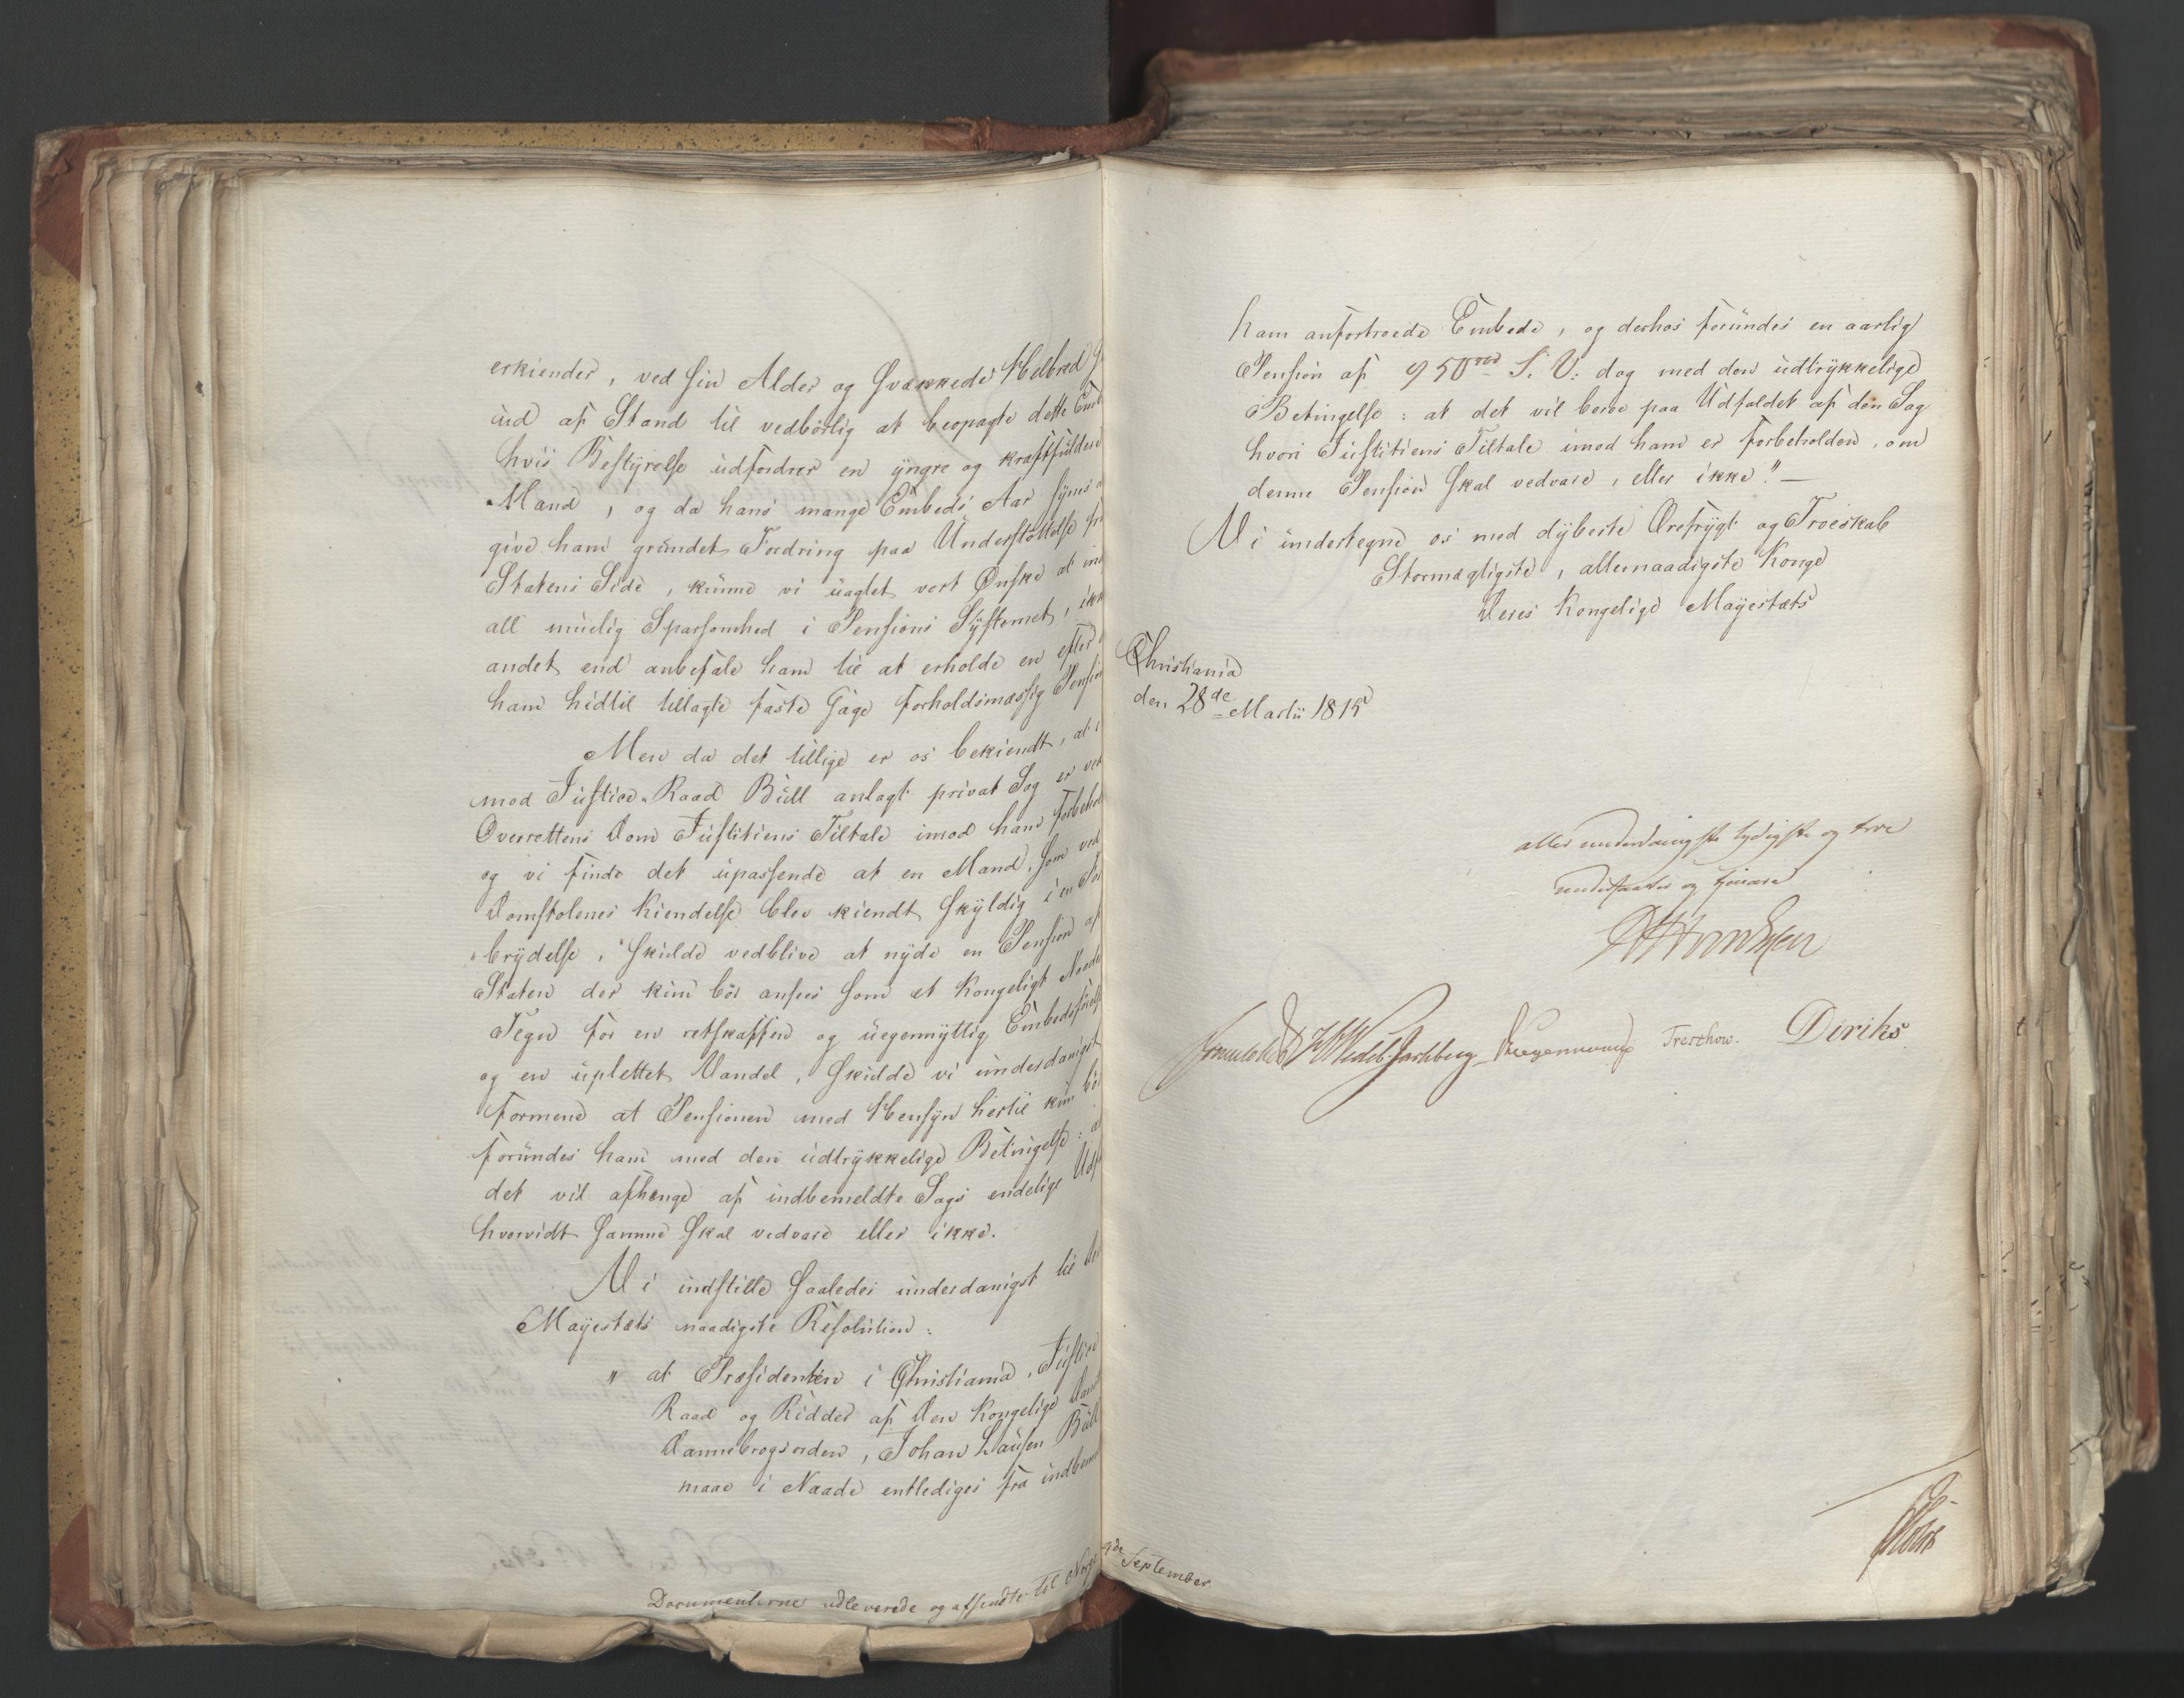 erkiender, ved sin Alder og svækkede Helbred
ud af Stand til vedbørlig at beopagte dette Emb
hvis Bestÿrelse udfordrer en ÿngre og kraftfulder
Mand, og da hans mange Embeds Aar sÿnes a
give ham grundet Fordring paa Understøttelse fr
Statens Side, kunne vi uagtet vort Ønske at in
all muelig Sparsomhed i Pensions Sÿstemet, ikk
andet end anbefale ham til at erholde en efter
ham hidtil tillagte faste Gage forholdsmæssig Pension
Men da det tillige er os bekiendt, at i
mod Justice-Raad Bull anlagt privat Sag er ved
Overrettens Dom Justitiens Tiltale imod ham forbehol
og vi finde det upassende at en Mand, som ved
Domstolenes Kiendelse blev kiendt skÿldig i en For
brÿdelse, skulde vedblive at nÿde en Pension af
Staten der kun bør ansees som et Kongeligt Naade
Tegn for en retskaffen og uegennÿttig Embedsførelse
og en uplettet Vandel, skulde vi underdanigst
formene at Pensionen med Hensÿn hertil kun bør
forundes ham med den udtrÿkkelige Betingelse: a
det vil afhænge af indbemeldte Sags endelige Udf
hvorvidt samme skal vedvare eller ikke.
Vi indstille saaledes underdanigst til De
Mayestæts naadigste Resolution:
" at Præsidenten i Christiania, Justice
Raad og Ridder af Den Kongelige Dan
Dannebrogsorden, Johan Lausen Bull
maae i Naade entlediges fra indbem
Documenterne udleverede og afsendte til Norge
9de September
ham anfortroede Embede, og derhos forundes en aarlig
Pension af 950 rbd S. V: dog med den udtrÿkkelige
Betingelse: at det vil beroe paa Udfaldet af den Sag
hvori Justitiens Tiltale imod ham er forbeholden, om
denne Pension skal vedvare, eller ikke." —
Vi undertegne os med dÿbeste Ærefrÿgt og Troeskab
Stormægtigste, allernaadigste Konge
Deres Kongelige Mayestæts
Christiania
den 28de Martii 1815
allerunderdanigste lydigste og troe
undersaatter og tjenere
Sommerhielm Wedel Jarlsberg Krogemann Treschow. Diriks
Holst